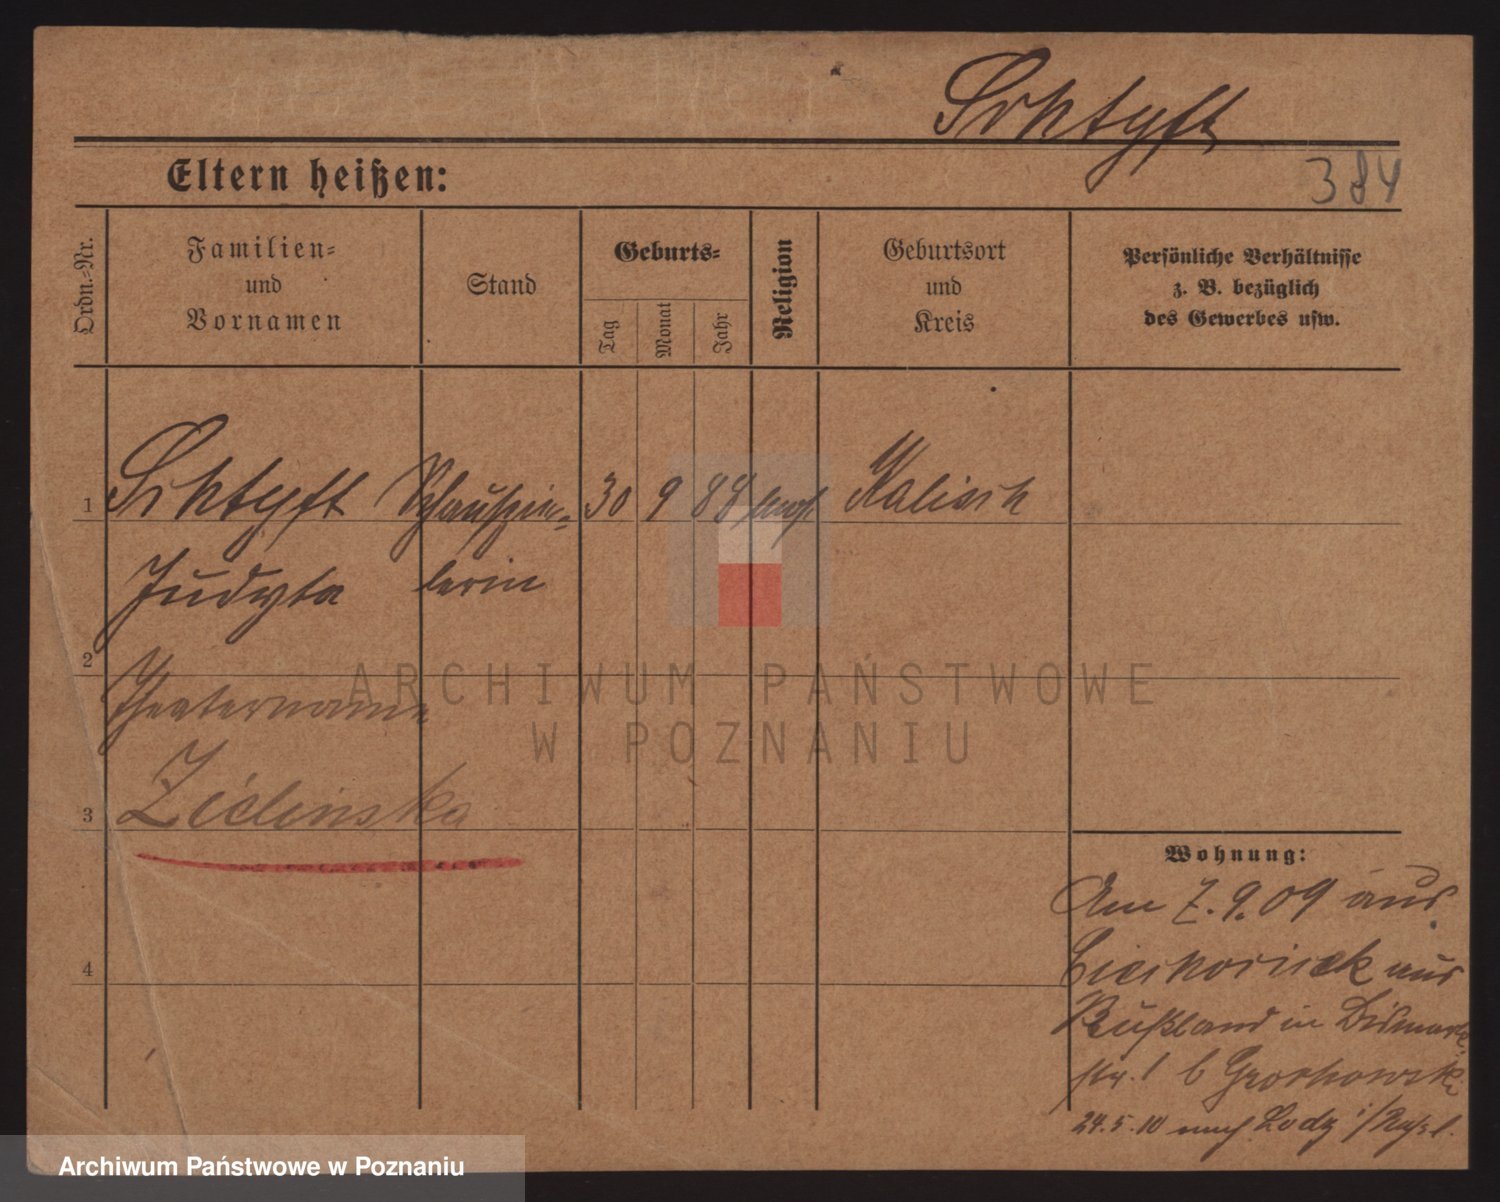 384
Eltern heißen:
Ordn.=Nr.
Familien=
und
Vornamen
Stand
Geburts=
Tag
Monat
Jahr
Religion
Geburtsort
und
Kreis
Persönliche Verhältnisse
z. B. bezüglich
des Gewerbes usw.
1 Schauspie= 30 9 88 Kalisch
Judyta lerin
2
Theatername
3 Zielinska
4
ARCHIWUM PAŃSTWOWE
W POZNANIU
Wohnung:
Am 7.9.09 aus
aus
Rußland in Bismark
str. 1 b Grochowski
24.5.10 nach Lodz i/Rußl.
Archiwum Państwowe w Poznaniu